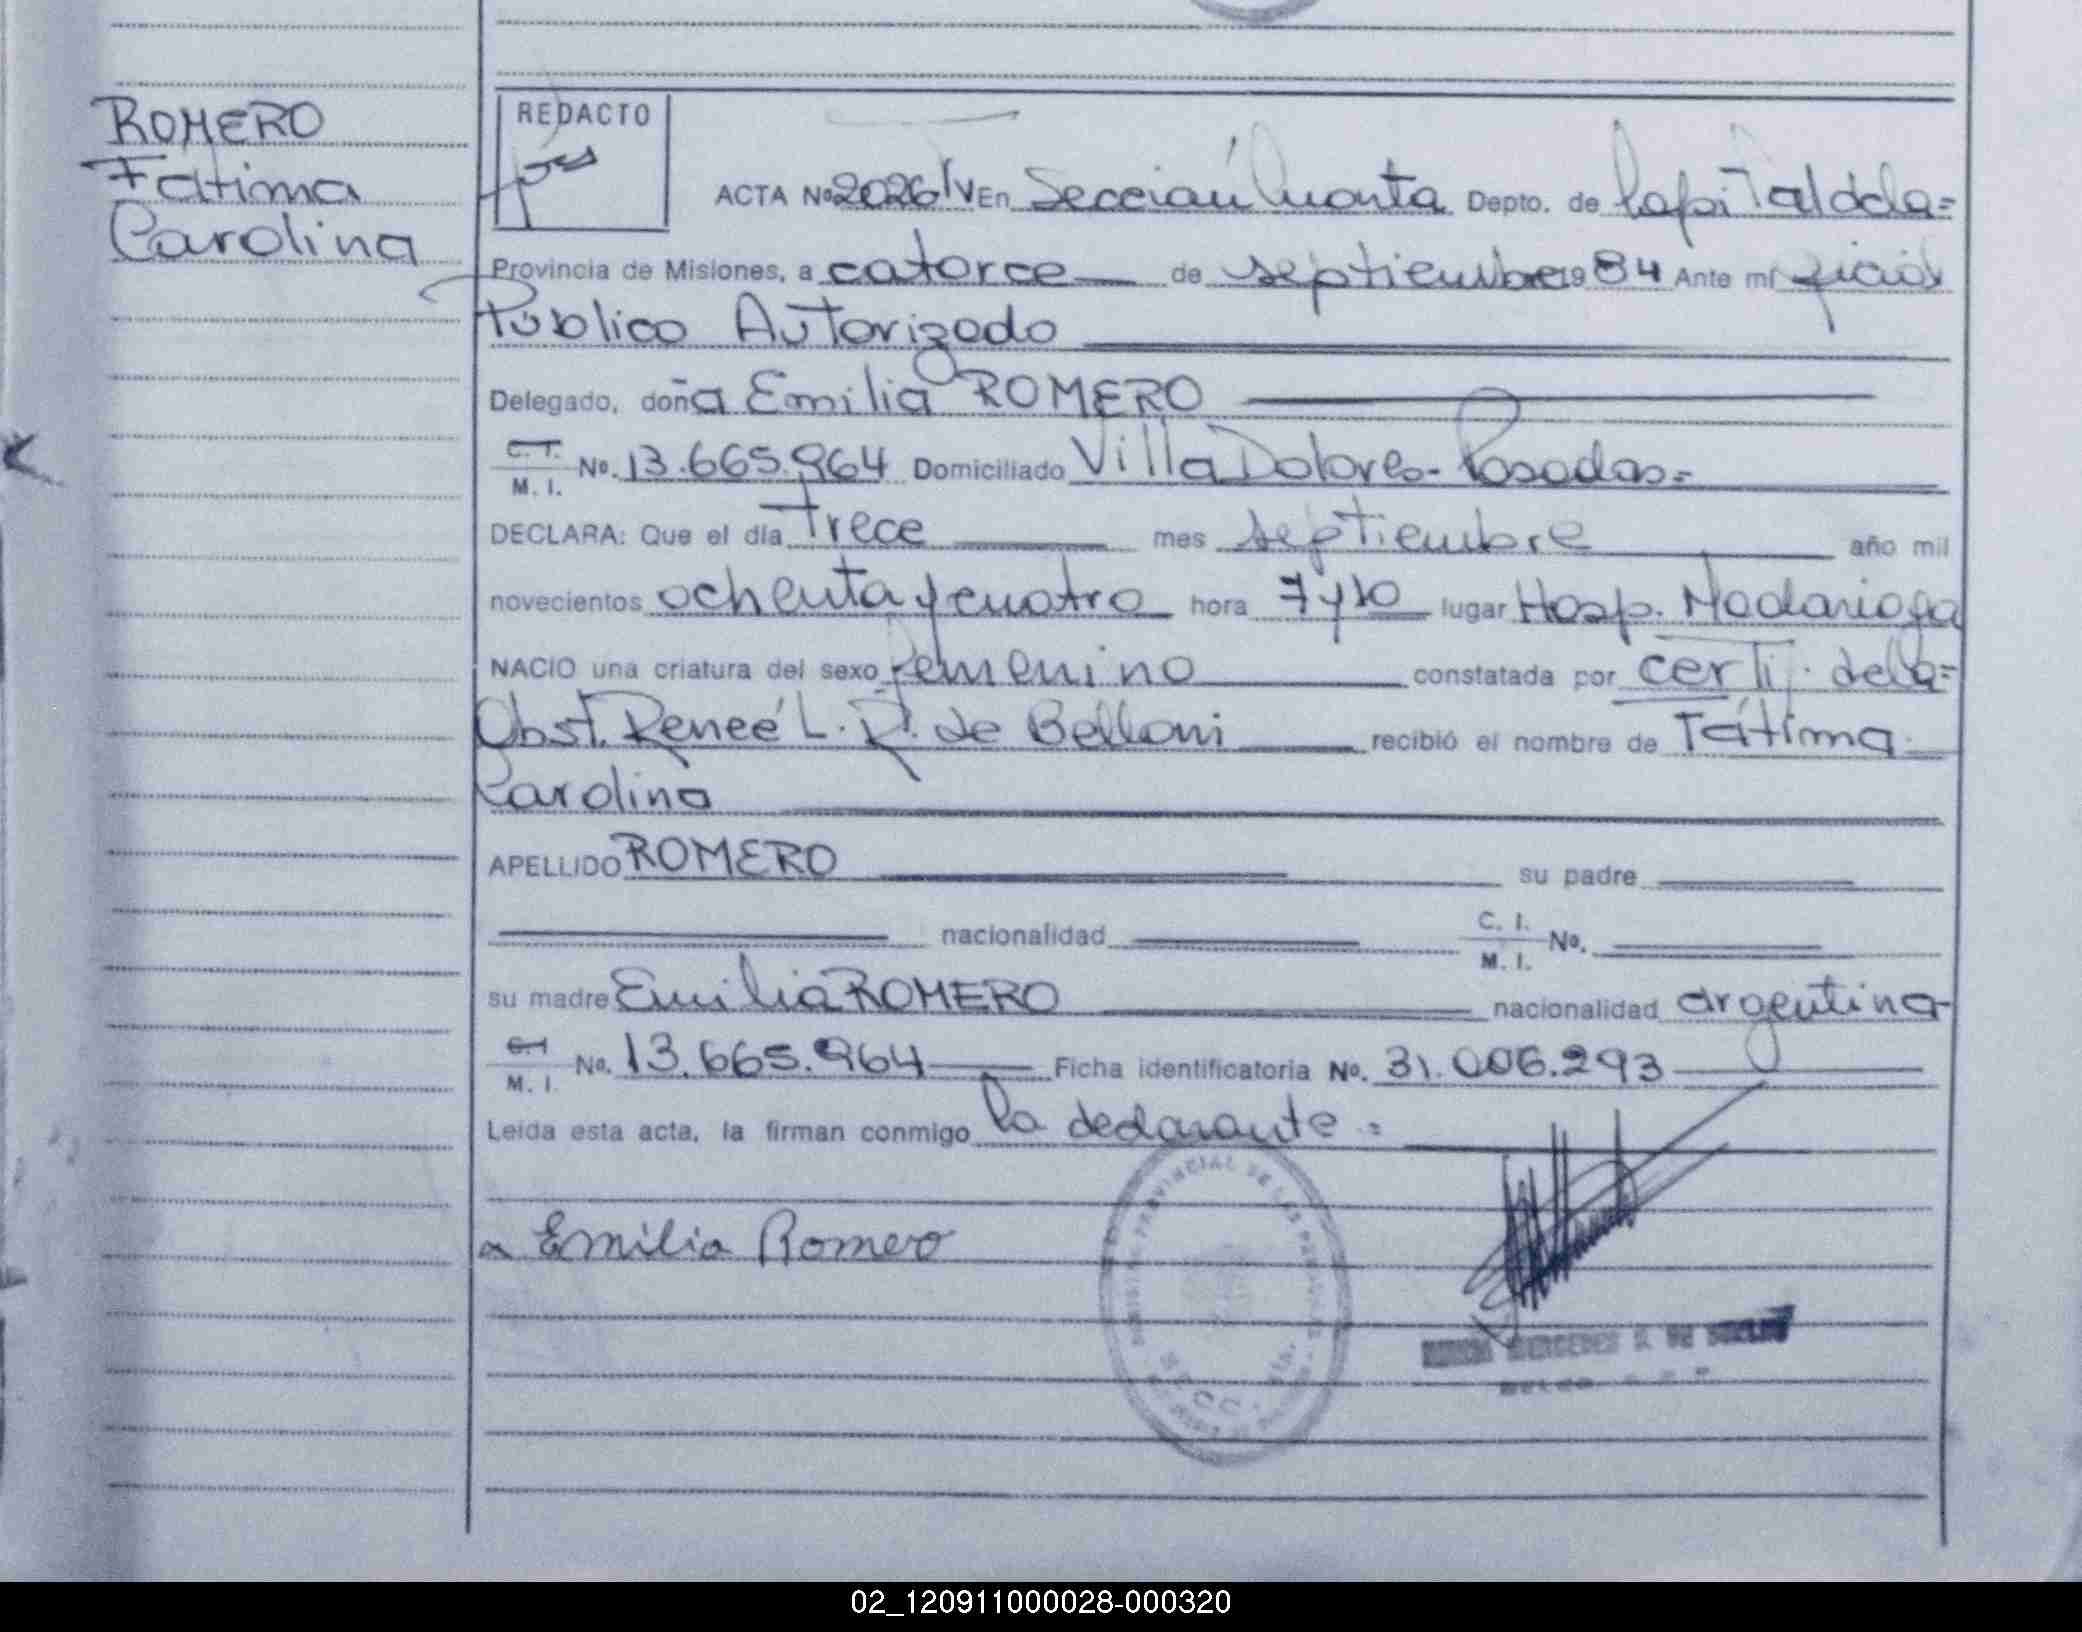 ROMERO
Fátima
Carolina
REDACTO
ACTA Nº 2026/V En Sección Cuarta Depto. de Capital de la=
Provincia de Misiones, a catorce de septiembre 19 84 Ante mí
Público Autorizado
Delegado, doña Emilia ROMERO
C. I. M. I. Nº. 13.665.964 Domiciliado Villa Dolores- Posadas=
DECLARA: Que el día Trece mes septiembre año mil
novecientos ochenta y cuatro hora 7 y 10 lugar Hosp. Madariaga
NACIO una criatura del sexo femenino constatada por certi. de la=
Obst. Reneé L. R. de Belloni recibió el nombre de Fátima
Carolina
APELLIDO ROMERO su padre
nacionalidad C. I. M. I. Nº.
su madre Emilia ROMERO nacionalidad argentina
C. I. M. I. Nº. 13.665.964 Ficha identificatoria Nº. 31.006.293
Leída esta acta, la firman conmigo la declarante.=
Emilia Romero
PROVINCIAL DE LAS PERSONAS
SECC. 4ta.
MERCEDES
02_120911000028-000320